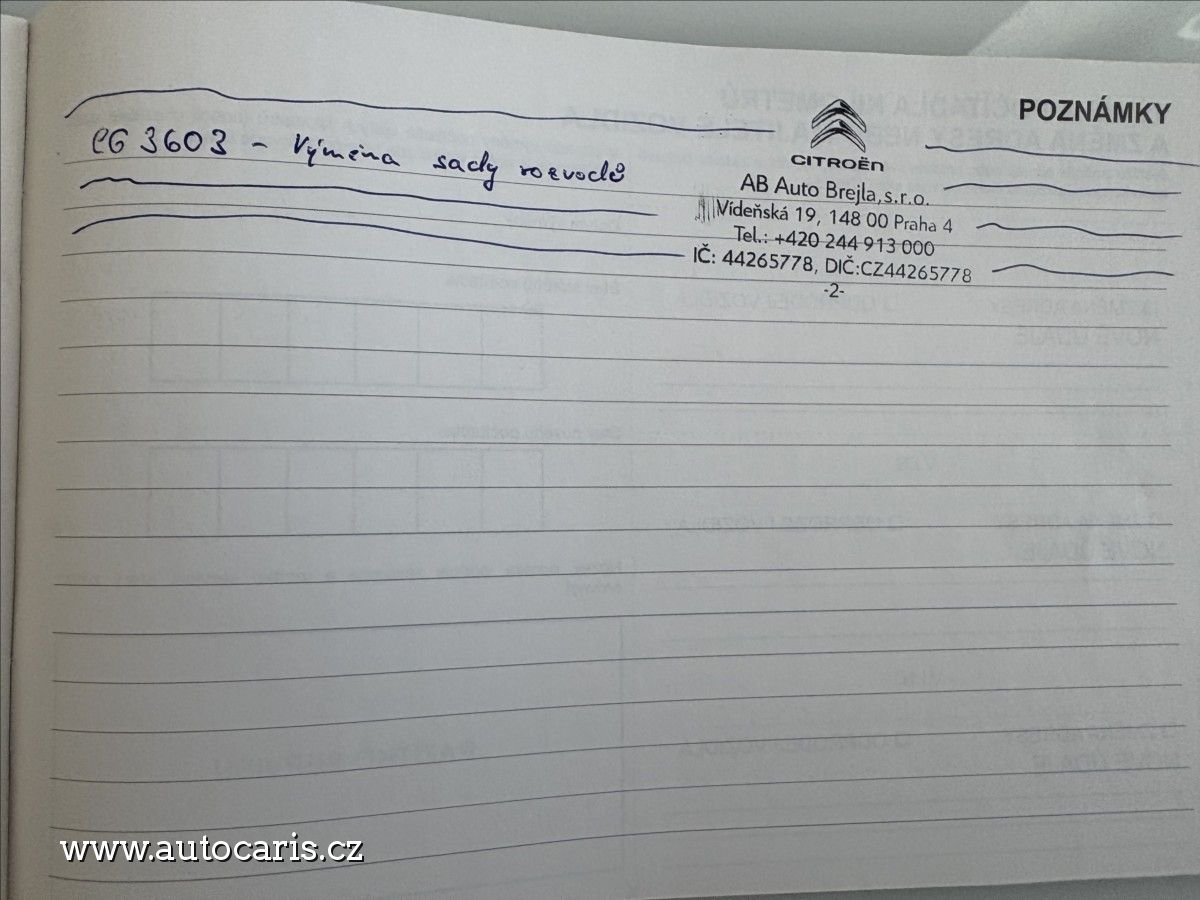 POZNÁMKY
CITROËN
3603 - Výměna sady rozvodů
AB Auto Brejla, s.r.o.
Vídeňská 19, 148 00 Praha 4
Tel.: +420 244 913 000
IČ: 44265778, DIČ:CZ44265778
-2-
www.autocaris.cz